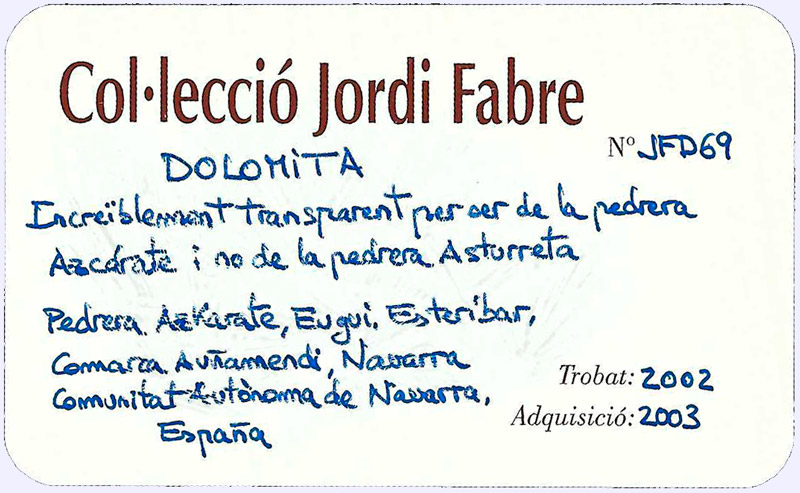 Col·lecció Jordi Fabre
Nº JFD69
DOLOMITA
Increïblement transparent per ser de la pedrera
Azcárate i no de la pedrera Asturreta
Pedrera Azkarate, Eugui, Esteribar,
Comarca Auñamendi, Navarra
Comunitat Autònoma de Navarra,
España
Trobat: 2002
Adquisició: 2003